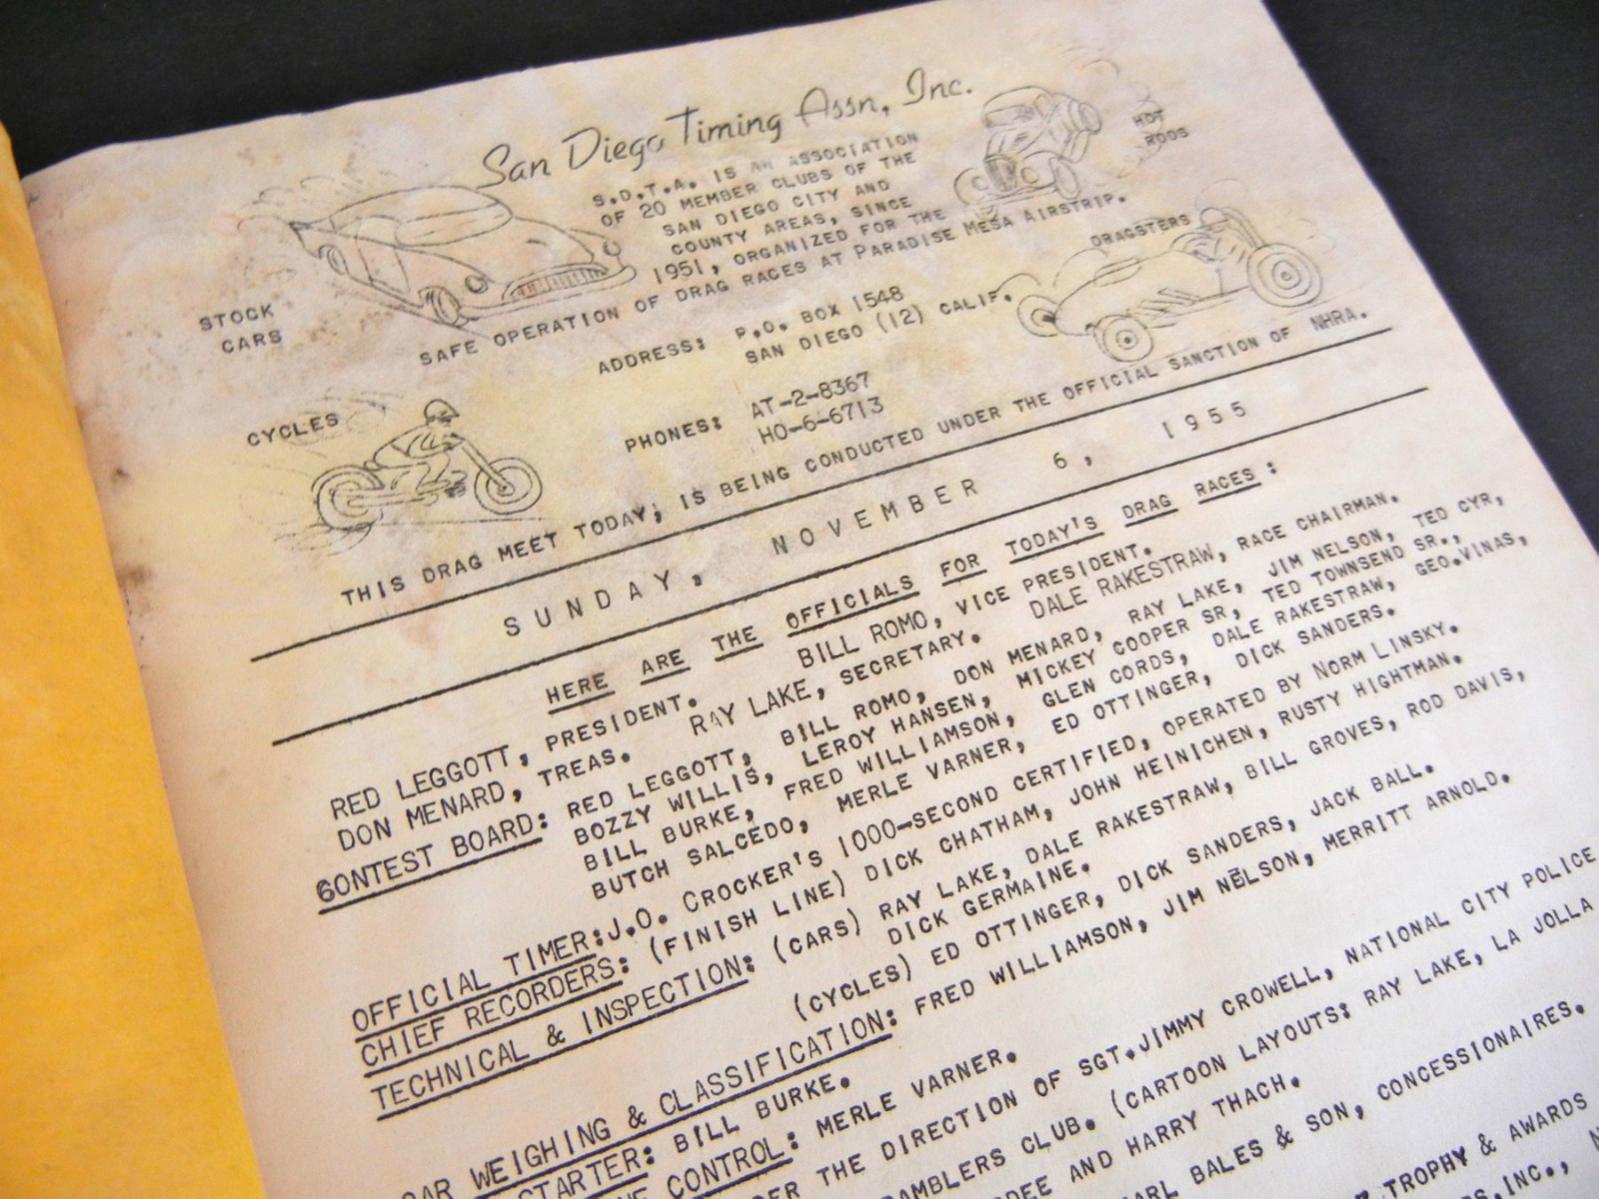 San Diego Timing Assn, Inc.
S.D.T.A. IS AN ASSOCIATION
OF 20 MEMBER CLUBS OF THE
SAN DIEGO CITY AND
COUNTY AREAS, SINCE
1951, ORGANIZED FOR THE
SAFE OPERATION OF DRAG RACES AT PARADISE MESA AIRSTRIP.
HOT
RODS
STOCK
CARS
DRAGSTERS
ADDRESS: P.O. BOX 1548
SAN DIEGO (12) CALIF.
CYCLES
PHONES: AT-2-8367
HO-6-6713
THIS DRAG MEET TODAY; IS BEING CONDUCTED UNDER THE OFFICIAL SANCTION OF NHRA.
SUNDAY, NOVEMBER 6, 1955
HERE ARE THE OFFICIALS FOR TODAY'S DRAG RACES:
RED LEGGOTT, PRESIDENT. BILL ROMO, VICE PRESIDENT.
DON MENARD, TREAS. RAY LAKE, SECRETARY. DALE RAKESTRAW, RACE CHAIRMAN.
CONTEST BOARD: RED LEGGOTT, BILL ROMO, DON MENARD, RAY LAKE, JIM NELSON, TED CYR,
BOZZY WILLIS, LEROY HANSEN, MICKEY COOPER SR, TED TOWNSEND SR.,
BILL BURKE, FRED WILLIAMSON, GLEN CORDS, DALE RAKESTRAW, GEO.VINAS,
BUTCH SALCEDO, MERLE VARNER, ED OTTINGER, DICK SANDERS.
OFFICIAL TIMER:J.O. CROCKER'S 1000-SECOND CERTIFIED, OPERATED BY NORM LINSKY.
CHIEF RECORDERS: (FINISH LINE) DICK CHATHAM, JOHN HEINICHEN, RUSTY HIGHTMAN.
TECHNICAL & INSPECTION: (CARS) RAY LAKE, DALE RAKESTRAW, BILL GROVES, ROD DAVIS,
DICK GERMAINE.
(CYCLES) ED OTTINGER, DICK SANDERS, JACK BALL.
CAR WEIGHING & CLASSIFICATION: FRED WILLIAMSON, JIM NELSON, MERRITT ARNOLD.
STARTER: BILL BURKE.
CONTROL: MERLE VARNER.
THE DIRECTION OF SGT.JIMMY CROWELL, NATIONAL CITY POLICE
CLUB. (CARTOON LAYOUTS: RAY LAKE, LA JOLLA
AND HARRY THACH.
BALES & SON, CONCESSIONAIRES.
TROPHY & AWARDS
INC.,